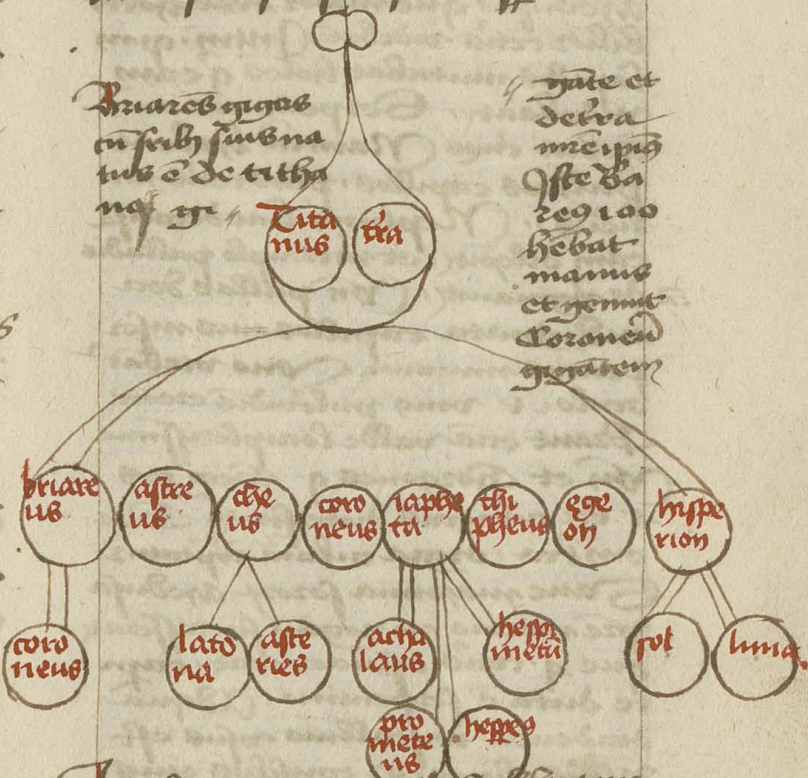 Briareus gigas
cū frībꝫ suis na
tus ē de titha
no
gāte et
de tr̄a
mr̄e ipius
Iste bri
reꝰ 100
hēbat
manus
et genuit
Coroneū
gigātem
Tita
nus
tr̄a
briare
us
astre
us
che
us
coro
neus
iaphe
tꝰ
thi
pheus
ege
on
hispe
rion
coro
neus
lato
na
aste
ries
acha
laus
hespi
metū
sol
luna
pro
mete
us
hesperꝰ